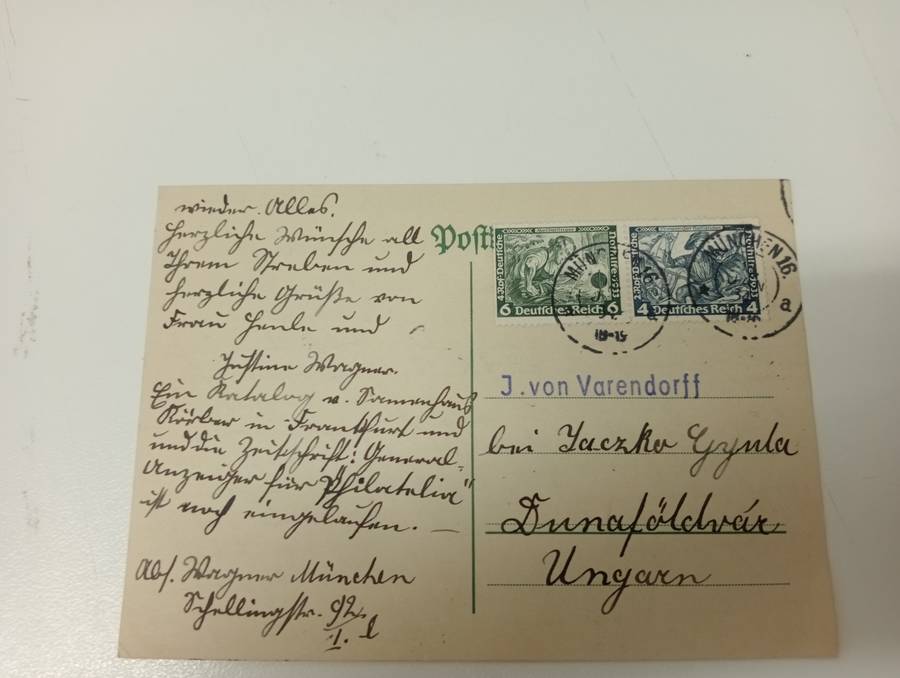 wieder. Alles.
herzliche Wünsche all
Ihrem Streben und
herzliche Grüße von
Frau Henle und
Justine Wagner.
Ein Katalog v. Samenhaus
Körber in Frankfurt und
und die Zeitschrift: General-
Anzeiger für Philatelia"
ist noch eingelaufen. —
Abs. Wagner München
Schellingstr. 92
I. l
Post
4. Rpf. Deutsche
Nothilfe · 1933
6 Deutsches Reich 6
2. Rpf. Deutsche
Nothilfe · 1933
4 Deutsches Reich 4
MÜN 16
18-19
MÜNCHEN 16.
a
J. von Varendorff
bei Jaczko Gyula
Dunaföldvár
Ungarn